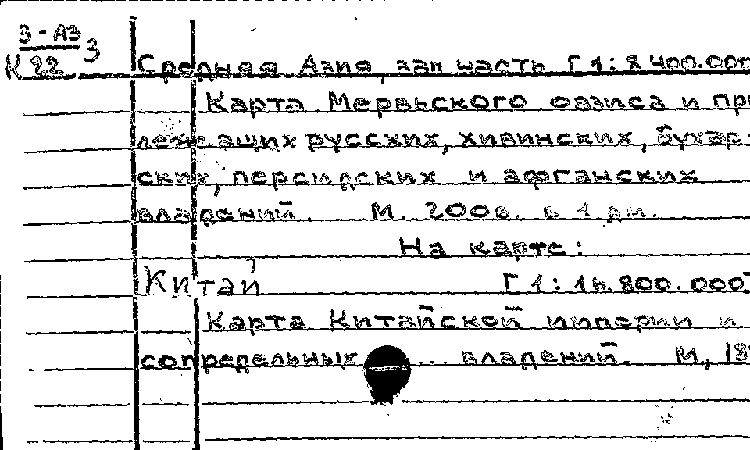 3 - АЗ 3
К 22
Средняя Азия, зап часть [1: 8 400.000
Карта Мервского оазиса и при
лежащих русских, хивинских, бухар-
ских, персидских и афганских
владений. М. 200в. в 1 дм.
На карте:
Китай [1: 16.800.000]
Карта Китайской империи и
сопредельных ... владений. М., 18